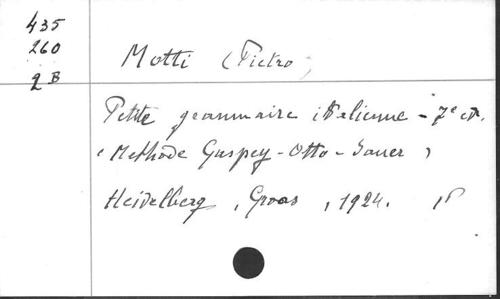 435
260
2 B
Motti (Pietro)
Petite grammaire italienne - 7e éd.
(Methode Gaspey-Otto-Sauer)
Heidelberg, Groos, 1924.